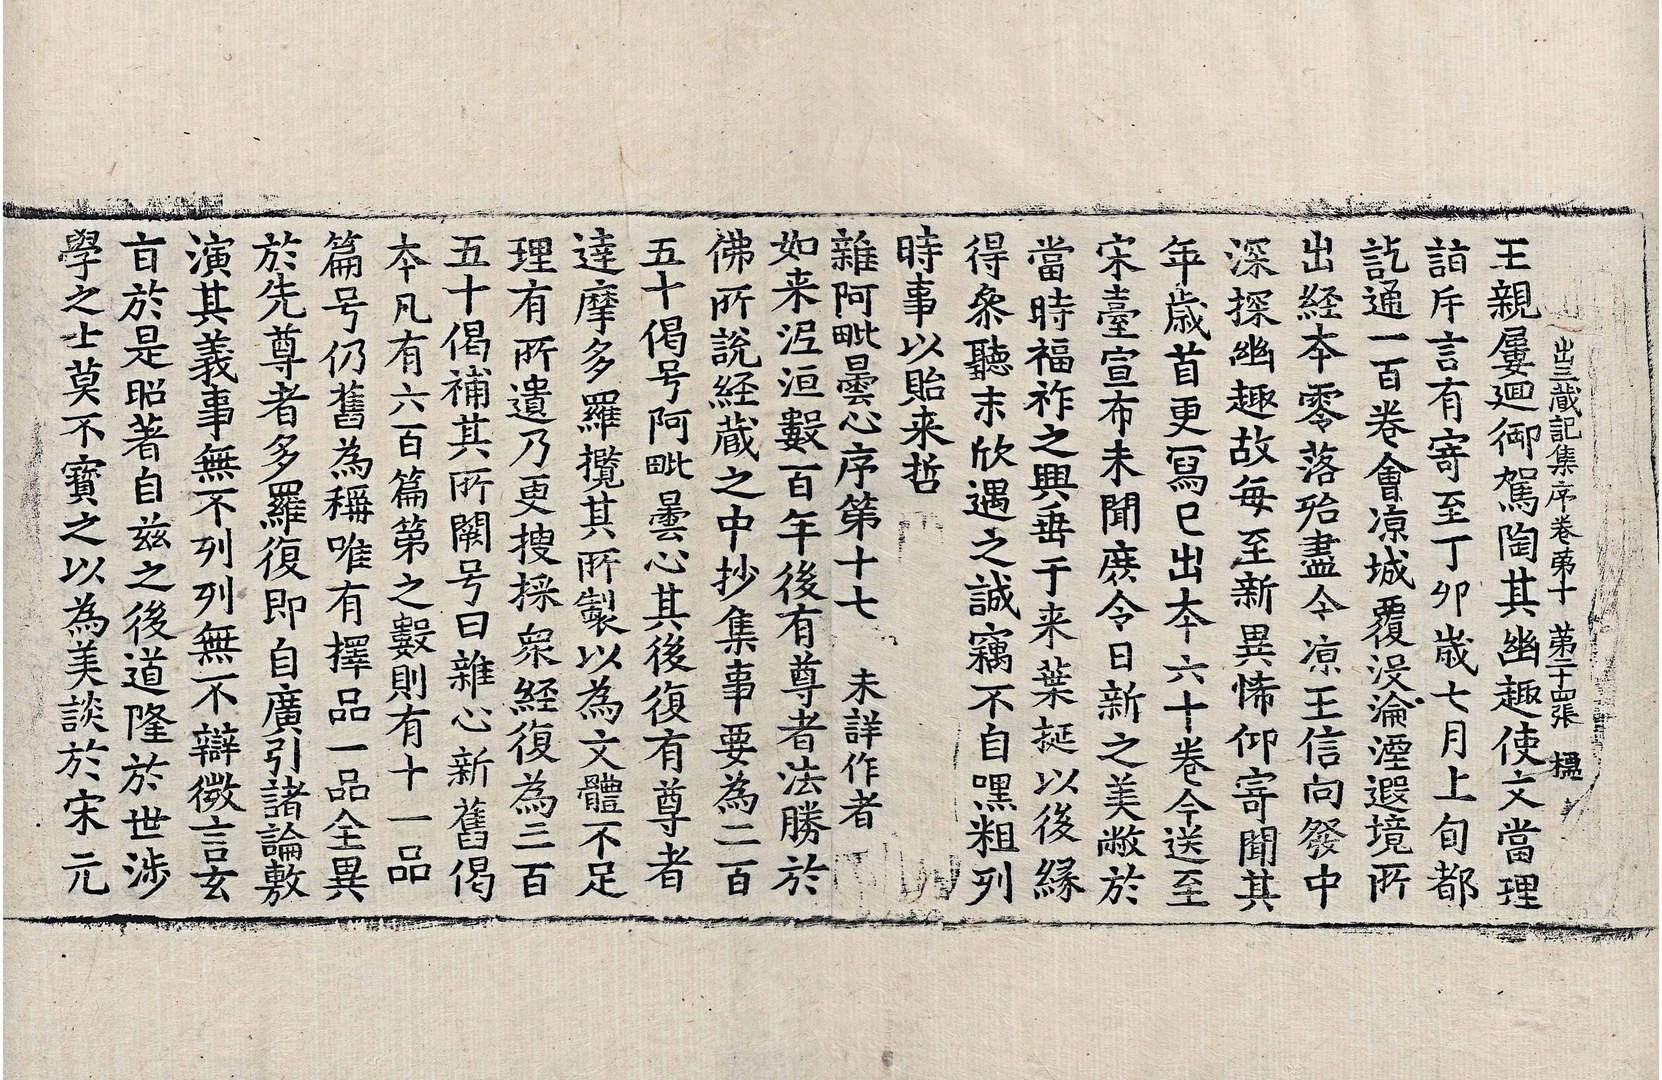 出三蔵記集序卷第十 第二十四張 楹
王親屢迴御駕陶其幽趣使文當理
詣斥言有寄至丁卯歲七月上旬都
訖通一百卷會涼城覆没淪湮遐境所
出経夲零落殆盡今涼王信向發中
深探幽趣故每至新異悕仰寄聞其
年歲首更冩已出夲六十卷今送至
宋臺宣布未聞庶令日新之美敞於
當時福祚之興垂于来葉挻以後縁
得叅聽末欣遇之誠竊不自嘿粗列
時事以貽来哲
雜阿毗曇心序第十七 未詳作者
如来泥洹數百年後有尊者法勝於
佛所說経蔵之中抄集事要為二百
五十偈号阿毗曇心其後復有尊者
達摩多羅攬其所製以為文體不足
理有所遺乃更搜採衆経復為三百
五十偈補其所闕号曰雜心新舊偈
夲凡有六百篇第之數則有十一品
篇号仍舊為稱唯有擇品一品全異
於先尊者多羅復即自廣引諸論敷
演其義事無不列列無不辯微言玄
旨於是昭著自茲之後道隆於世涉
學之士莫不寶之以為美談於宋元